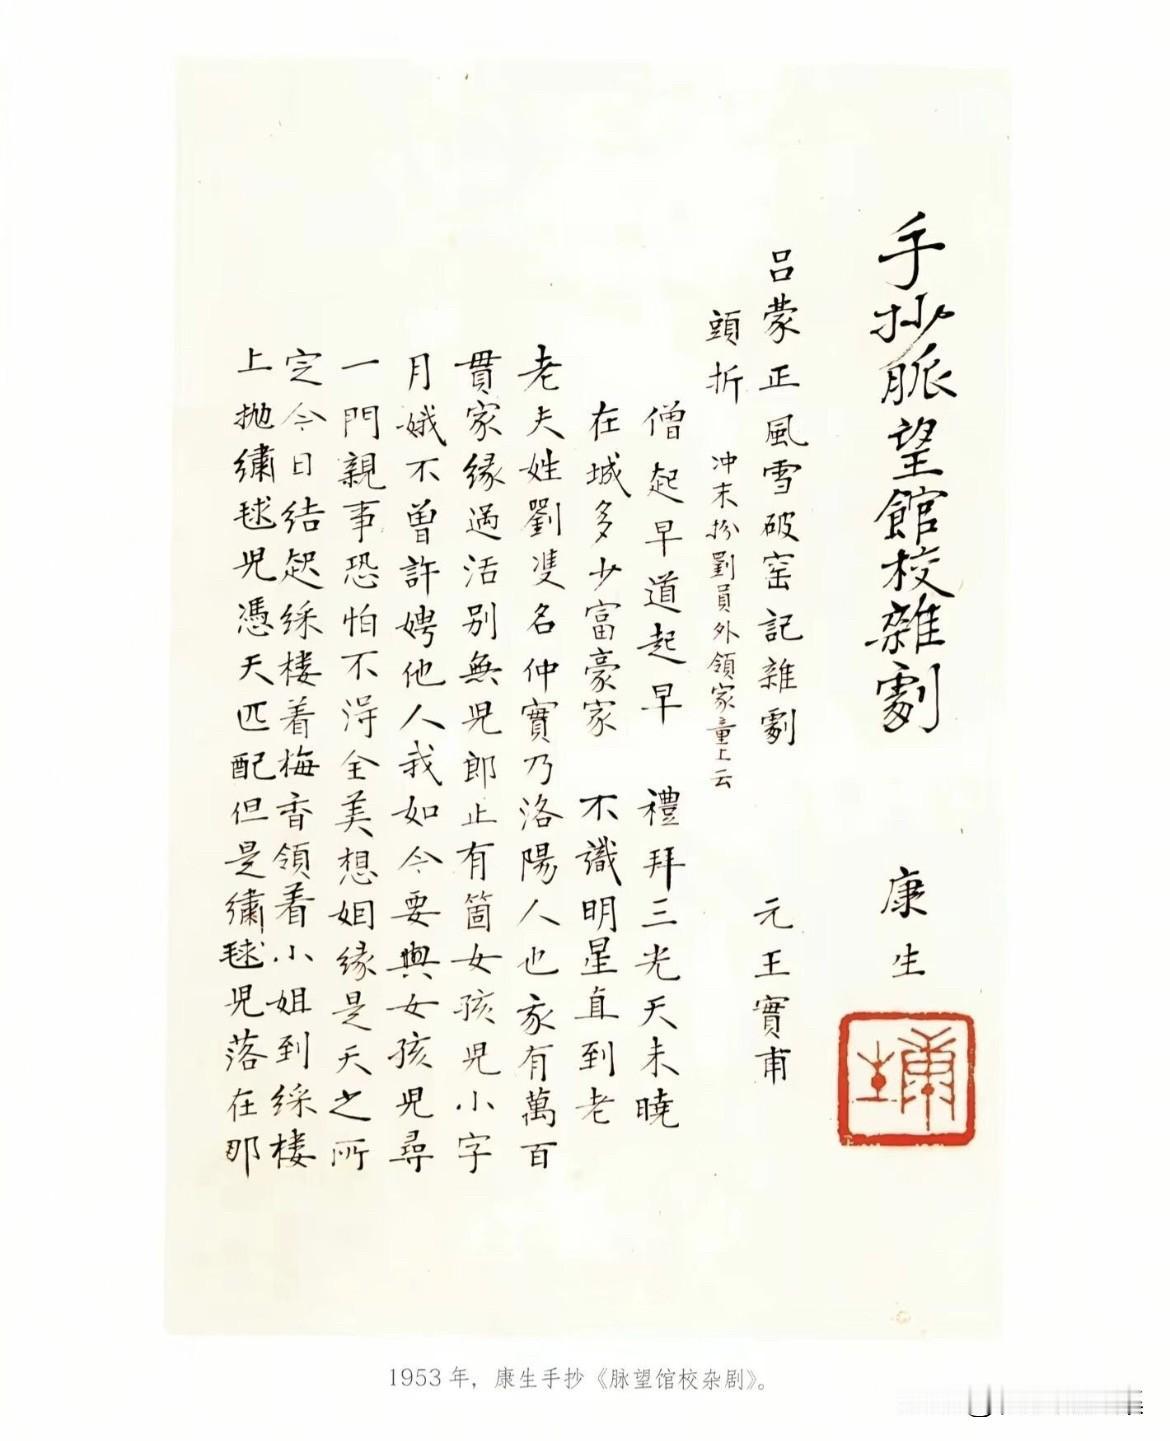 手抄脈望館校雜劇 康生
康生
呂蒙正風雪破窑記雜劇 元王實甫
頭折 冲末扮劉員外領家童上云
僧起早道起早 禮拜三光天未曉
在城多少富豪家 不識明星直到老
老夫姓劉雙名仲實乃洛陽人也家有萬百
貫家緣過活别無兒郎止有箇女孩兒小字
月娥不曾許娉他人我如今要與女孩兒尋
一門親事恐怕不得全美想姻緣是天之所
定今日結起綵楼着梅香領着小姐到綵楼
上拋繡毬兒憑天匹配但是繡毬兒落在那
1953年，康生手抄《脉望馆校杂剧》。